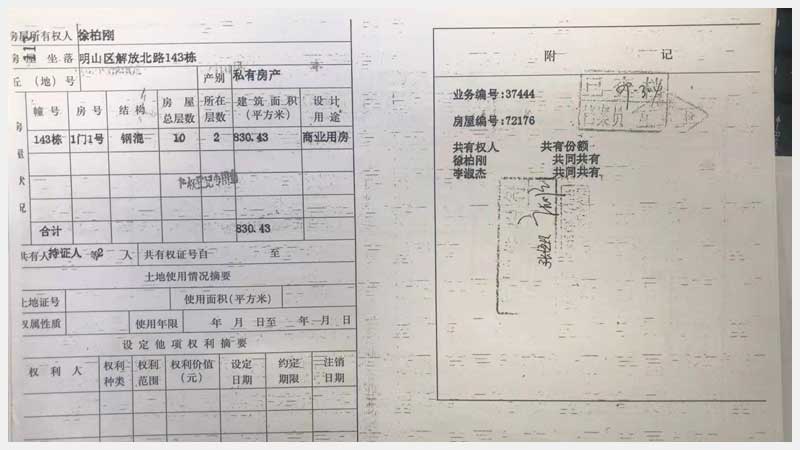 房屋所有权人 徐柏刚
房屋坐落 明山区解放北路143栋
丘（地）号 产别 私有房产
幢号 房号 结构 房屋总层数 所在层数 建筑面积（平方米） 设计用途
143栋 1门1号 钢混 10 2 830.43 商业用房
合计 830.43
共有人 持证人 等 2 人 共有权证号自 至
土地使用情况摘要
土地证号 使用面积（平方米）
权属性质 使用年限 年 月 日至 年 月 日
设定他项权利摘要
权利人 权利种类 权利范围 权利价值（元） 设定日期 约定期限 注销日期
附 记
业务编号:37444
房屋编号:72176
共有权人 共有份额
徐柏刚 共同共有
李淑杰 共同共有